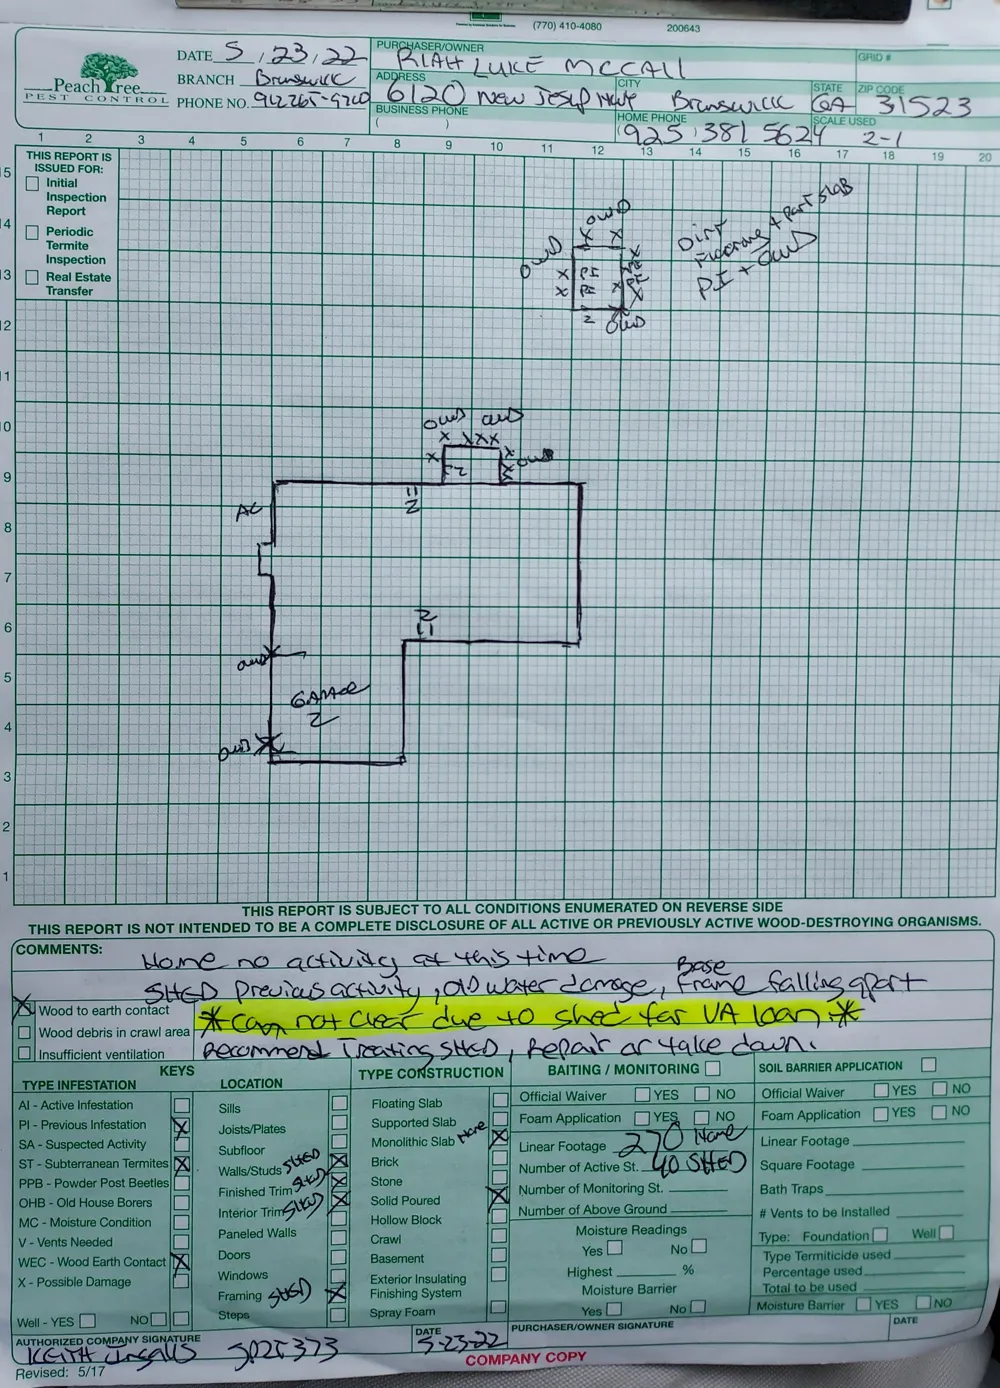 (770) 410-4080 200643
PeachTree
PEST CONTROL
DATE 5, 23, 22
BRANCH Brunswick
PHONE NO. 912265-9700
PURCHASER/OWNER
RIAH LUKE MCCALL
GRID #
ADDRESS CITY STATE ZIP CODE
6120 New Jesup Hwy Brunswick GA 31523
BUSINESS PHONE HOME PHONE SCALE USED
( ) (925) 381 5624 2-1
1 2 3 4 5 6 7 8 9 10 11 12 13 14 15 16 17 18 19 20
THIS REPORT IS
ISSUED FOR:
Initial
Inspection
Report
Periodic
Termite
Inspection
Real Estate
Transfer
15
14
13
12
11
10
9
8
7
6
5
4
3
2
1
OWD
OWD
X X
X PI PI X
X PI X
2
OWD
Dirt
Flooring + Part Slab
PI + OWD
OWD OWD
X XXX
X X OWD
AC
OWD
GARAGE
2
OWD
THIS REPORT IS SUBJECT TO ALL CONDITIONS ENUMERATED ON REVERSE SIDE
THIS REPORT IS NOT INTENDED TO BE A COMPLETE DISCLOSURE OF ALL ACTIVE OR PREVIOUSLY ACTIVE WOOD-DESTROYING ORGANISMS.
COMMENTS:
Home no activity at this time
SHED Previous activity, old water damage, Base Frame falling apart
*Can not clear due to shed for VA loan*
Recommend Treating SHED, Repair or take down.
Wood to earth contact
Wood debris in crawl area
Insufficient ventilation
KEYS
TYPE INFESTATION
AI - Active Infestation
PI - Previous Infestation
SA - Suspected Activity
ST - Subterranean Termites
PPB - Powder Post Beetles
OHB - Old House Borers
MC - Moisture Condition
V - Vents Needed
WEC - Wood Earth Contact
X - Possible Damage
Well - YES NO
LOCATION
Sills
Joists/Plates
Subfloor
Walls/Studs SHED
Finished Trim SHED
Interior Trim SHED
Paneled Walls
Doors
Windows
Framing SHED
Steps
TYPE CONSTRUCTION
Floating Slab
Supported Slab
Monolithic Slab Home
Brick
Stone
Solid Poured
Hollow Block
Crawl
Basement
Exterior Insulating
Finishing System
Spray Foam
BAITING / MONITORING
Official Waiver YES NO
Foam Application YES NO
Linear Footage 270 Home
Number of Active St. 40 SHED
Number of Monitoring St.
Number of Above Ground
Moisture Readings
Yes No
Highest %
Moisture Barrier
Yes No
SOIL BARRIER APPLICATION
Official Waiver YES NO
Foam Application YES NO
Linear Footage
Square Footage
Bath Traps
# Vents to be Installed
Type: Foundation Well
Type Termiticide used
Percentage used
Total to be used
Moisture Barrier YES NO
AUTHORIZED COMPANY SIGNATURE DATE PURCHASER/OWNER SIGNATURE DATE
KEITH Ingalls 5-23-22
Revised: 5/17
COMPANY COPY